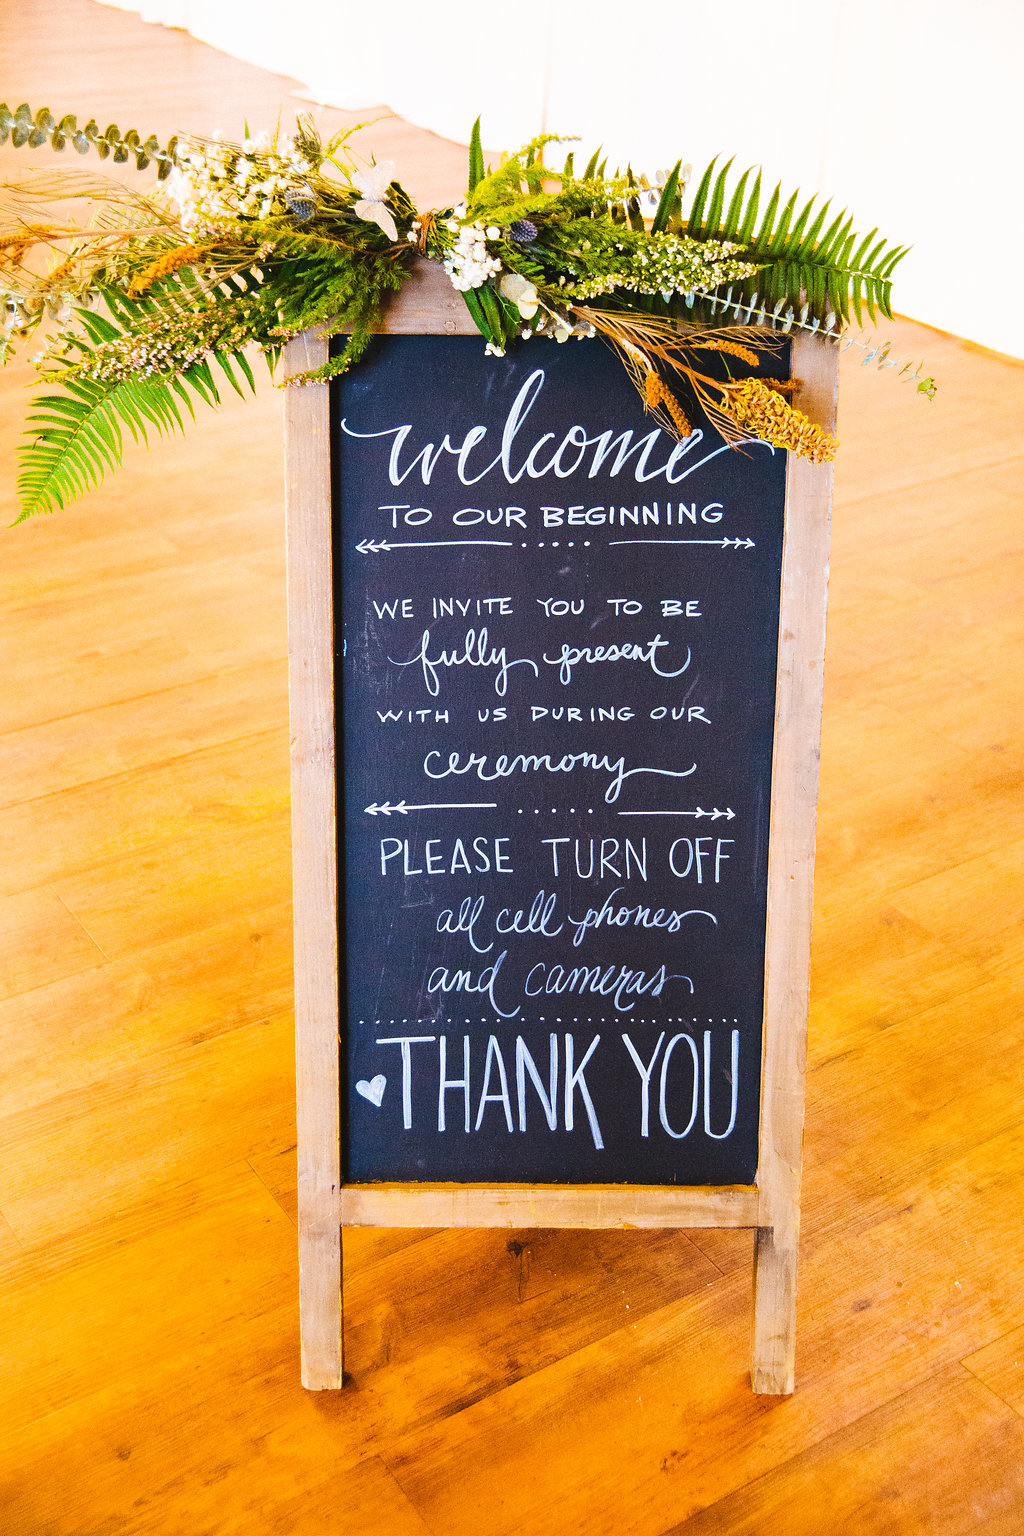 welcome
TO OUR BEGINNING
WE INVITE YOU TO BE
fully present
WITH US DURING OUR
ceremony
PLEASE TURN OFF
all cell phones
and cameras
THANK YOU